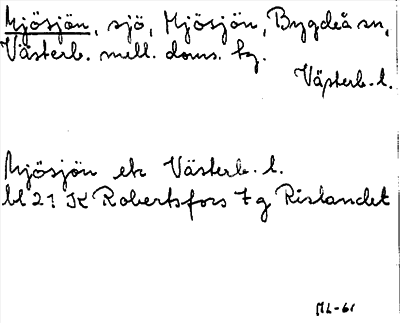 Mjösjön, sjö, Mjösjön, Bygdeå sn,
Västerb. mell. doms. tg.
Västerb. l.
Mjösjön ek Västerb. l.
bl 21 K Robertsfors 7 g Rislandet
ML-61